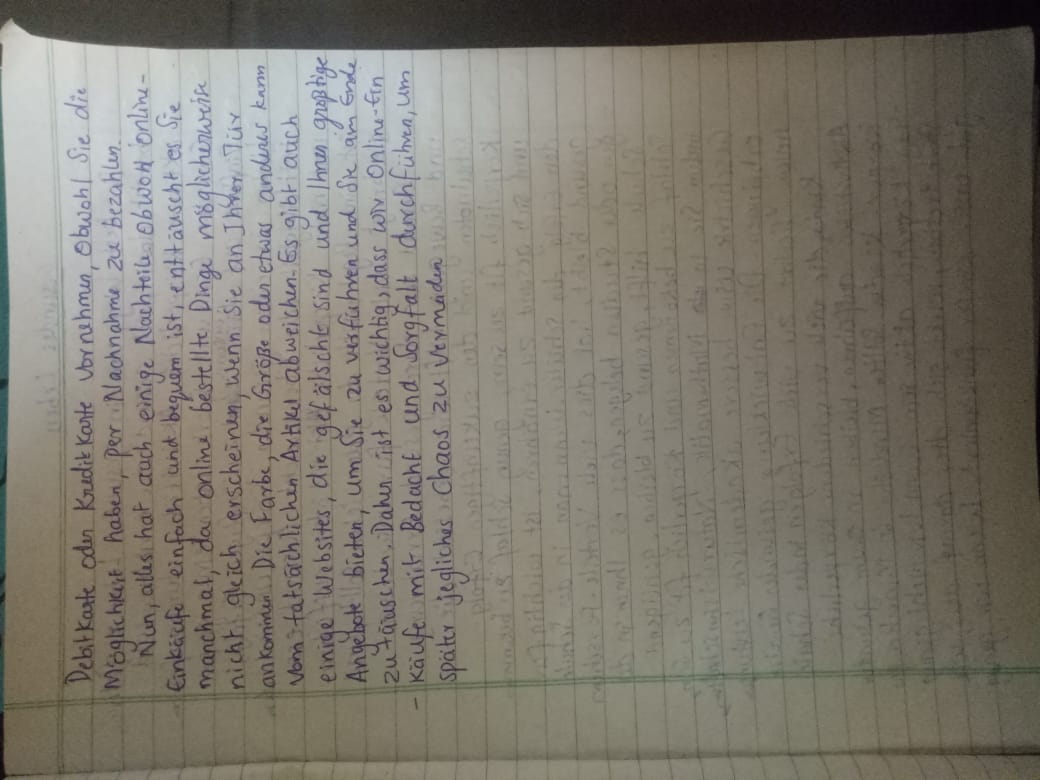 Debitkarte oder Kreditkarte vornehmen, obwohl Sie die
Möglichkeit haben, per Nachnahme zu bezahlen.
Nun, alles hat auch einige Nachteile. Obwohl online-
Einkäufe einfach und bequem ist, enttäuscht es Sie
manchmal, da online bestellte Dinge möglicherweise
nicht gleich erscheinen, wenn Sie an Ihrer Tür
ankommen. Die Farbe, die Größe oder etwas anderes kann
vom tatsächlichen Artikel abweichen. Es gibt auch
einige Websites, die gefälscht sind und Ihnen großtige
Angebote bieten, um Sie zu verführen und Sie am Ende
zu täuschen. Daher ist es wichtig, dass wir Online-Ein
- käufe mit Bedacht und Sorgfalt durchführen, um
später jegliches Chaos zu vermeiden